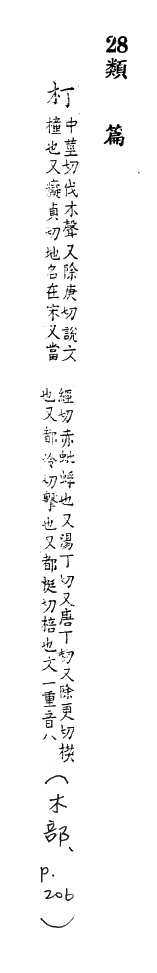 28 類 篇
朾
中莖切伐木聲又除庚切說文
橦也又癡貞切地名在宋又當
經切赤蚍蜉也又湯丁切又唐丁切又除更切楔
也又都冷切擊也又都挺切棓也文一重音八
（木部、p.206）